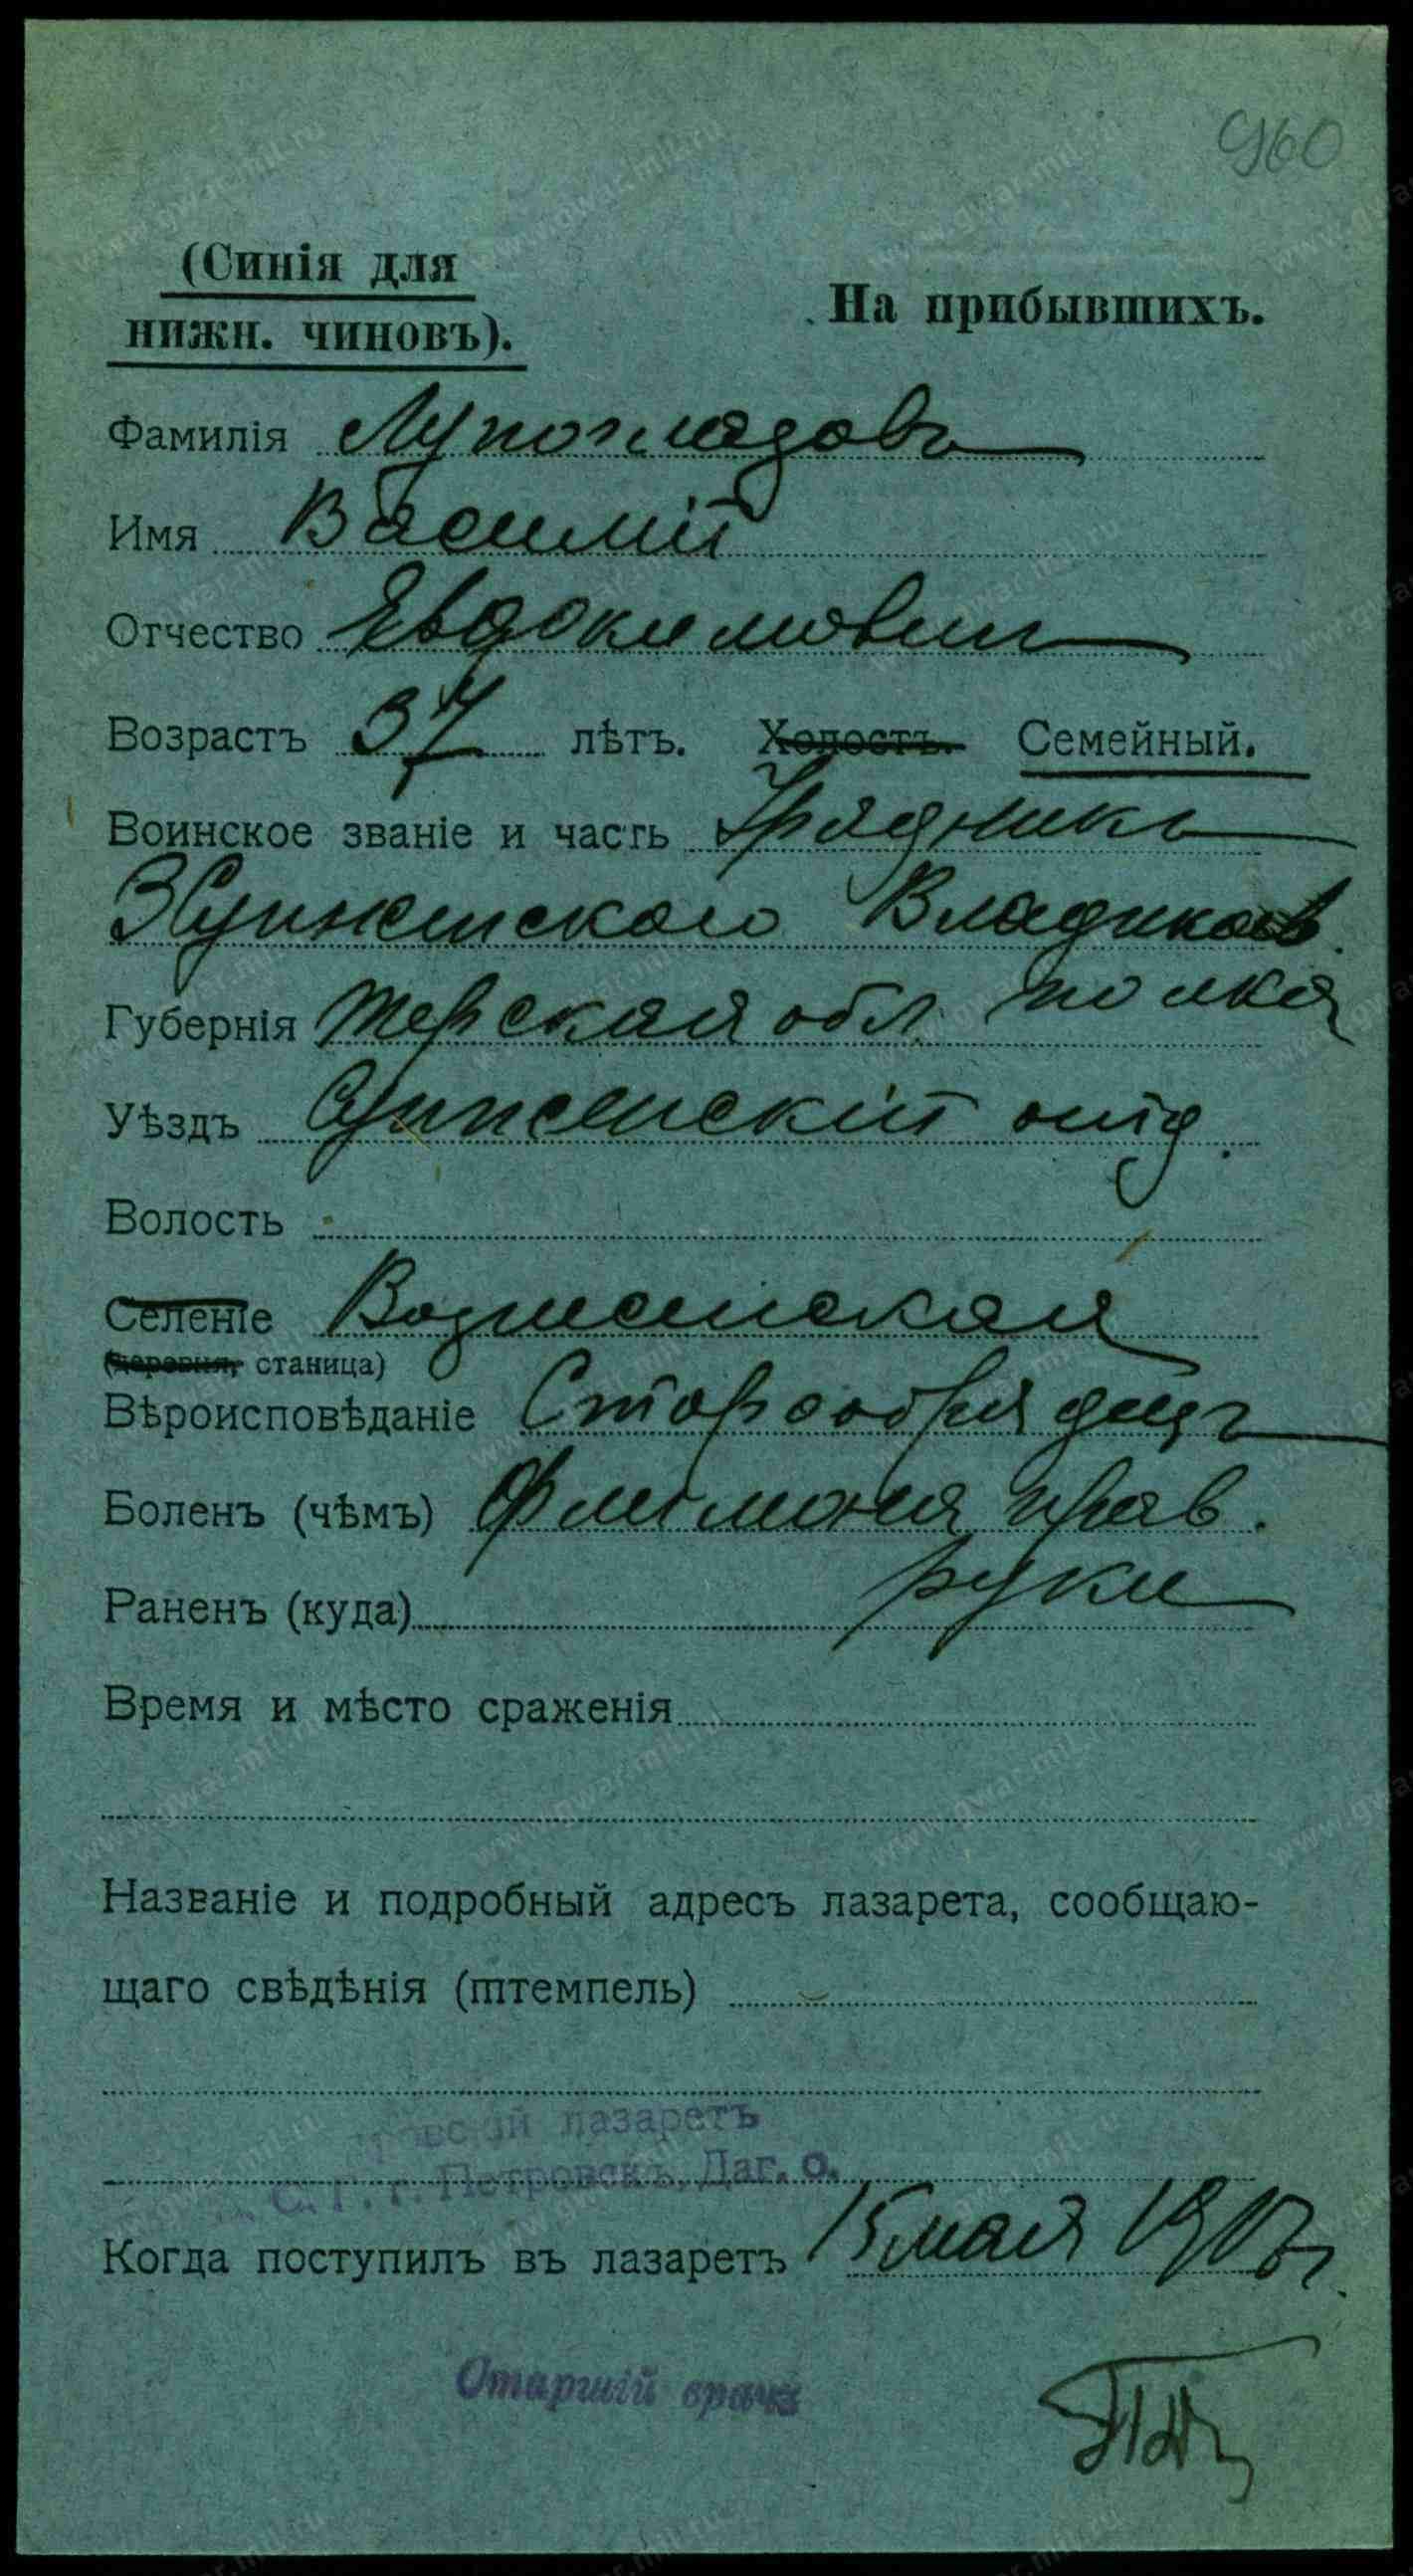 960
(Синія для
нижн. чиновъ).
На прибывшихъ.
Фамилія Лупоглядовъ
Имя Василій
Отчество Евдокимовичъ
Возрастъ 37 лѣтъ. Холостъ. Семейный.
Воинское званіе и часть Урядникъ
3 Сунженскаго Владикав.
полка
Губернія Терская обл.
Уѣздъ Сунженскій отд.
Волость
Селеніе Вознесенская
(деревня, станица)
Вѣроисповѣданіе Старообрядецъ
Боленъ (чѣмъ) Флегмона прав.
руки
Раненъ (куда)
Время и мѣсто сраженія
Названіе и подробный адресъ лазарета, сообщаю-
щаго свѣдѣнія (штемпель)
лазаретъ
г. Петровскъ, Даг. о.
Когда поступилъ въ лазаретъ 15 мая 1917 г.
Старшій врачъ